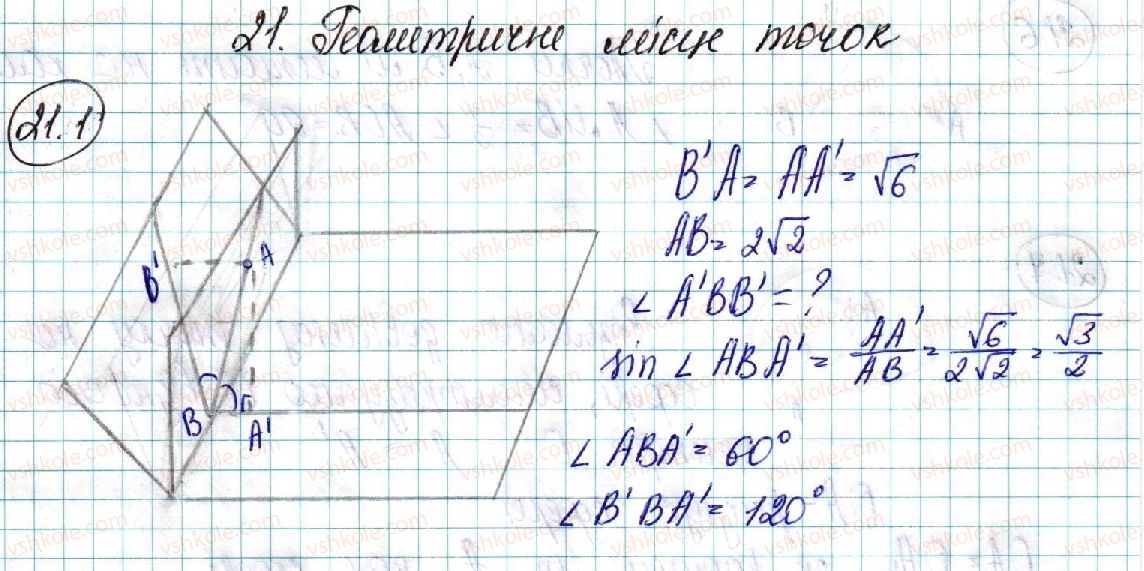 21. Геометричне місце точок
21.1
B'A = AA' = √6
AB = 2√2
∠ A'BB' = ?
sin ∠ ABA' = AA'/AB = √6/2√2 = √3/2
∠ ABA' = 60°
∠ B'BA' = 120°
B'
A
B
A'